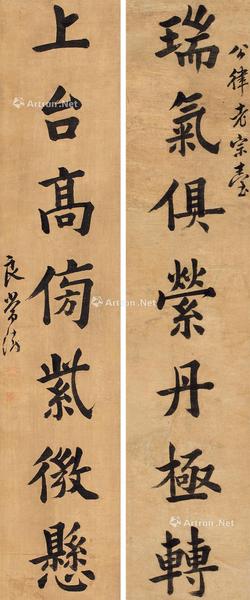 公律老宗臺
瑞氣俱縈丹極轉
上台高傍紫微懸
良常澍
Artron.Net
Artron.Net
Artron.Net
Artron.Net
Artron.Net
Artron.Net